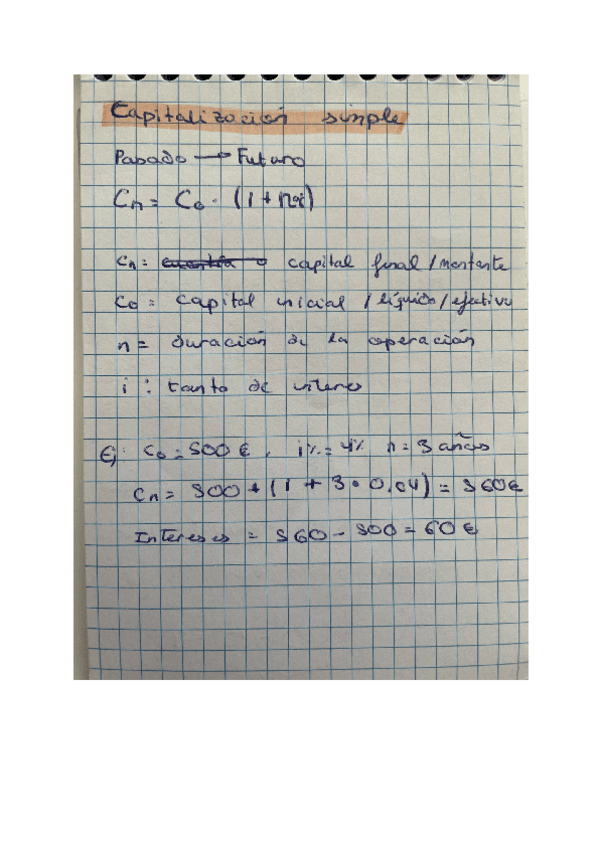 Capitalización simple
Pasado → Futuro
Cn = Co · (1 + n·i)
Cn = capital final / montante
Co = capital inicial / líquido / efectivo
n = duración de la operación
i : tanto de interes
Ej: Co = 500 €, i% = 4% n = 3 años
Cn = 500 + (1 + 3 · 0,04) = 560€
Intereses = 560 - 500 = 60 €